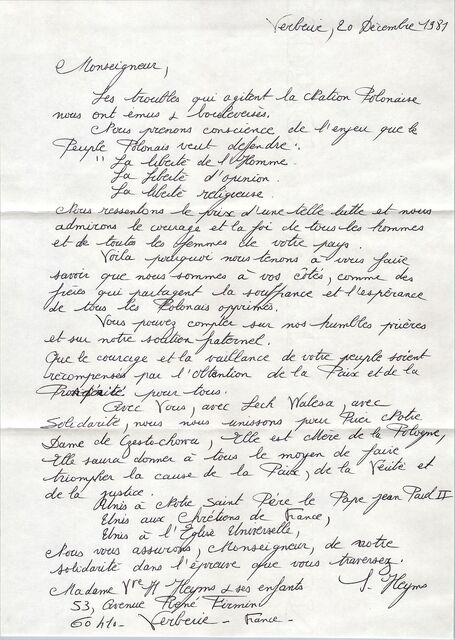 Verberie, 20 Décembre 1981
Monseigneur,
Les troubles qui agitent la Nation Polonaise
nous ont émus & bouleversés.
Nous prenons conscience de l'enjeu que le
Peuple Polonais veut défendre :
" La liberté de l'Homme.
La liberté d'opinion.
La liberté religieuse.
Nous ressentons le prix d'une telle lutte et nous
admirons le courage et la foi de tous les hommes
et de toutes les femmes de votre pays.
Voilà pourquoi nous tenons à vous faire
savoir que nous sommes à vos côtés, comme des
frères qui partagent la souffrance et l'espérance
de tous les Polonais opprimés.
Vous pouvez compter sur nos humbles prières
et sur notre soutien fraternel.
Que le courage et la vaillance de votre peuple soient
récompensés par l'obtention de la Paix et de la
pour tous.
Avec Vous, avec Lech Walesa, avec
Solidarité, nous nous unissons pour Prier Notre
Dame de Czestochowa, Elle est Mère de la Pologne,
Elle saura donner à tous le moyen de faire
triompher la cause de la Paix, de la Vérité et
de la justice.
Unis à Notre Saint Père le Pape Jean Paul II
Unis aux Chrétiens de France,
Unis à l'Église Universelle,
Nous vous assurons, Monseigneur, de notre
solidarité dans l'épreuve que vous traversez.
Madame Vve H Heyms & ses enfants
S. Heyms
53, Avenue René Firmin
60410 - Verberie - France -